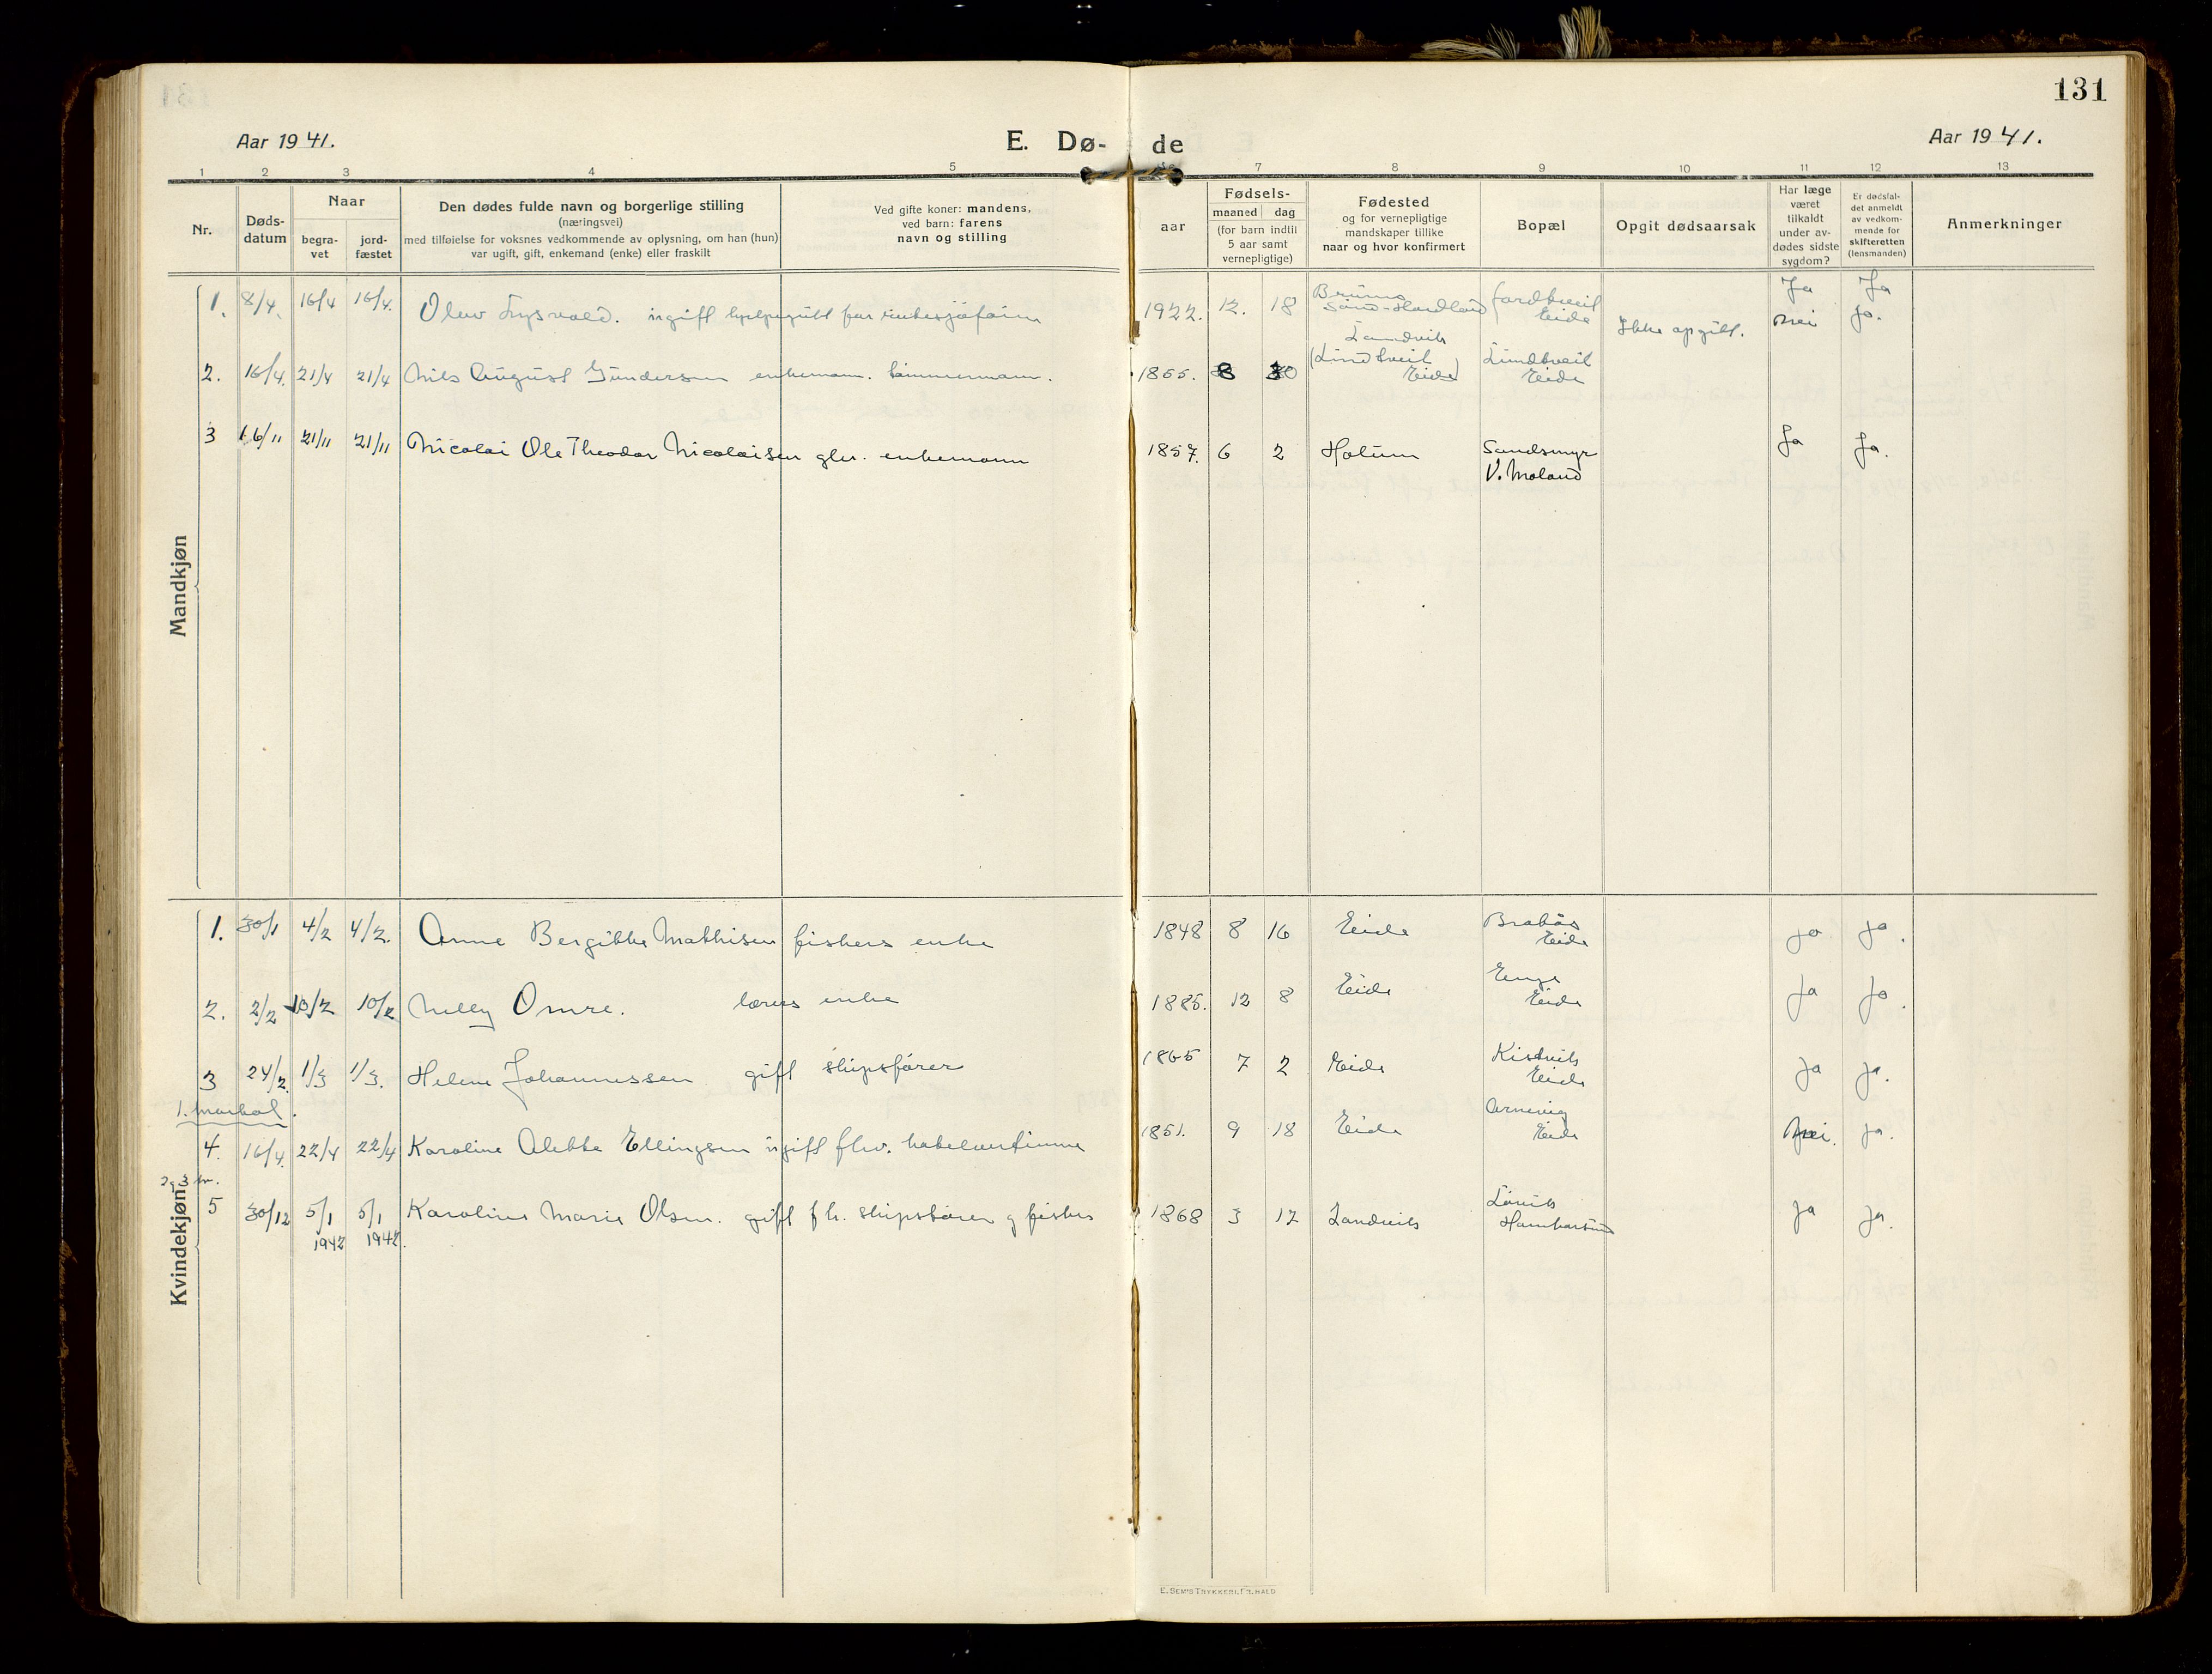 131
Aar 1941.
E. Dø- de
Aar 1941.
1 2 3 4 5 7 8 9 10 11 12 13
Nr.
Døds-
datum
Naar
begra-
vet
jord-
fæstet
Den dødes fulde navn og borgerlige stilling
(næringsvei)
med tilføielse for voksnes vedkommende av oplysning, om han (hun)
var ugift, gift, enkemand (enke) eller fraskilt
Ved gifte koner: mandens,
ved barn: farens
navn og stilling
aar
Fødsels-
maaned dag
(for barn indtil
5 aar samt
vernepligtige)
Fødested
og for vernepligtige
mandskaper tillike
naar og hvor konfirmert
Bopæl
Opgit dødsaarsak
Har læge
været
tilkaldt
under av-
dødes sidste
sygdom?
Er dødsfal-
det anmeldt
av vedkom-
mende for
skifteretten
(lensmanden)
Anmerkninger
Mandkjøn
1. 8/4. 16/4 16/4. Olav ugift 1922. 12. 18 Eide Ja Ja
2. 16/4. 21/4 21/4 Nils August Gundersen enkemann. tømmermann. 1855. 8 30 Landvik (Lindtveit Eide) Lindtveit Eide Ikke opgitt. Nei Ja.
3 16/11 21/11 21/11 Nicolai Ole Theodor Nicolaisen enkemann 1857. 6 2 Holum Sandsmyr V. Moland Ja Ja.
Kvindekjøn
1. 30/1 4/2 4/2. Anne Bergitte Mathisen fiskers enke 1848 8 16 Eide Eide Ja Ja.
2. 2/2 10/2 10/2 Nelly Omre. lærers enke 1885. 12 8 Eide Enge Eide Ja Ja.
3 24/2. 1/3 1/3. Helene Johannessen gift skipsfører 1865 7 2 Eide Kistvik Eide Ja Ja.
4. 16/4. 22/4 22/4 Karoline Alette Ellingsen ugift flv. 1851. 9 18 Eide Arnevig Eide Nei. Ja.
5 30/12 5/1 1942 5/1 1942. Karoline Marie Olsen. gift fh. og fisker 1868 3 12 Landvik Hamkarsund Ja Ja.
E. SEM'S TRYKKERI, FR.HALD